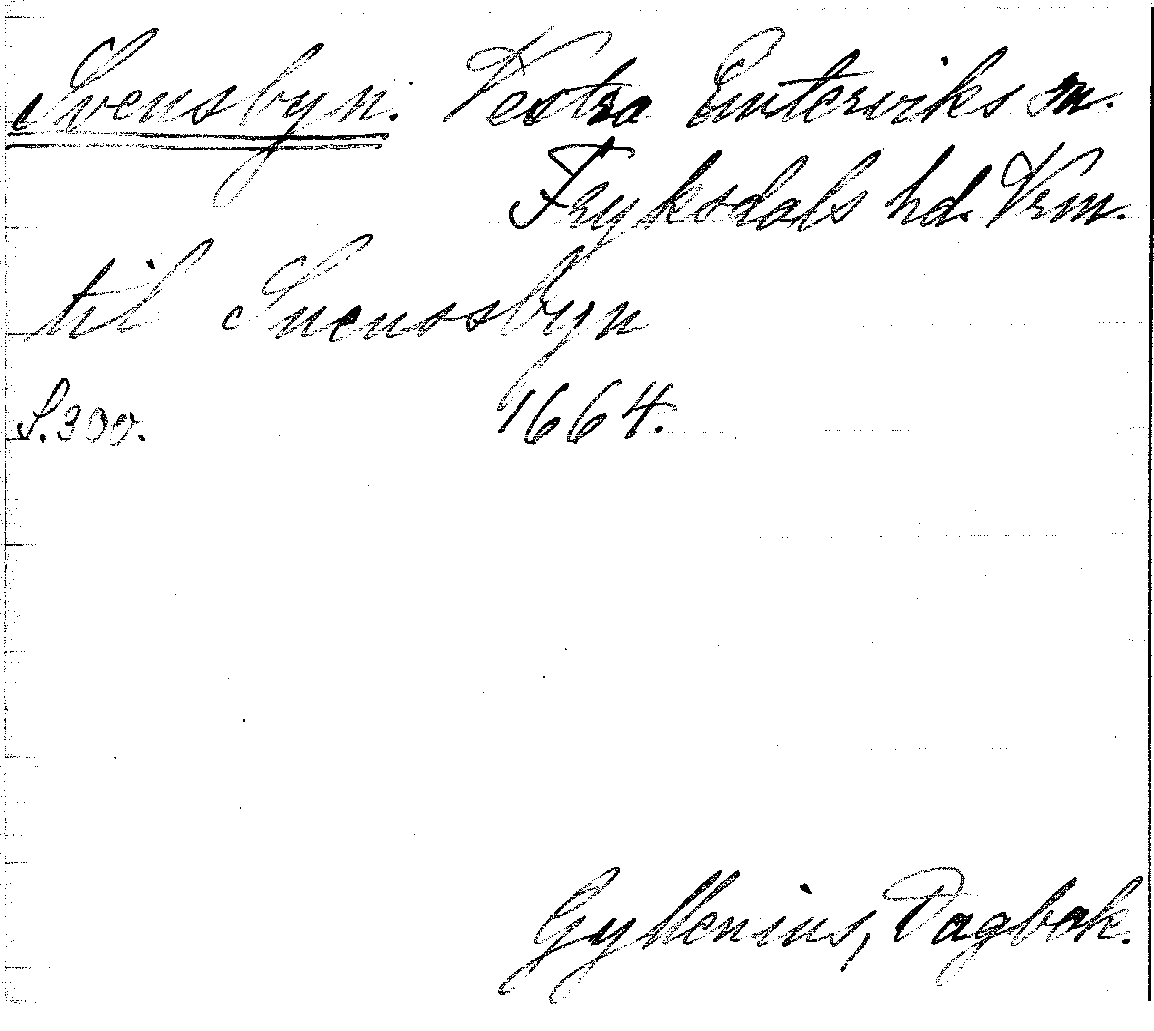 Svensbyn. Vestra Emterviks sn.
Fryksdals hd. Vrm.
til Suenssbyn
S. 300. 1664.
Gyllenius, Dagbok.